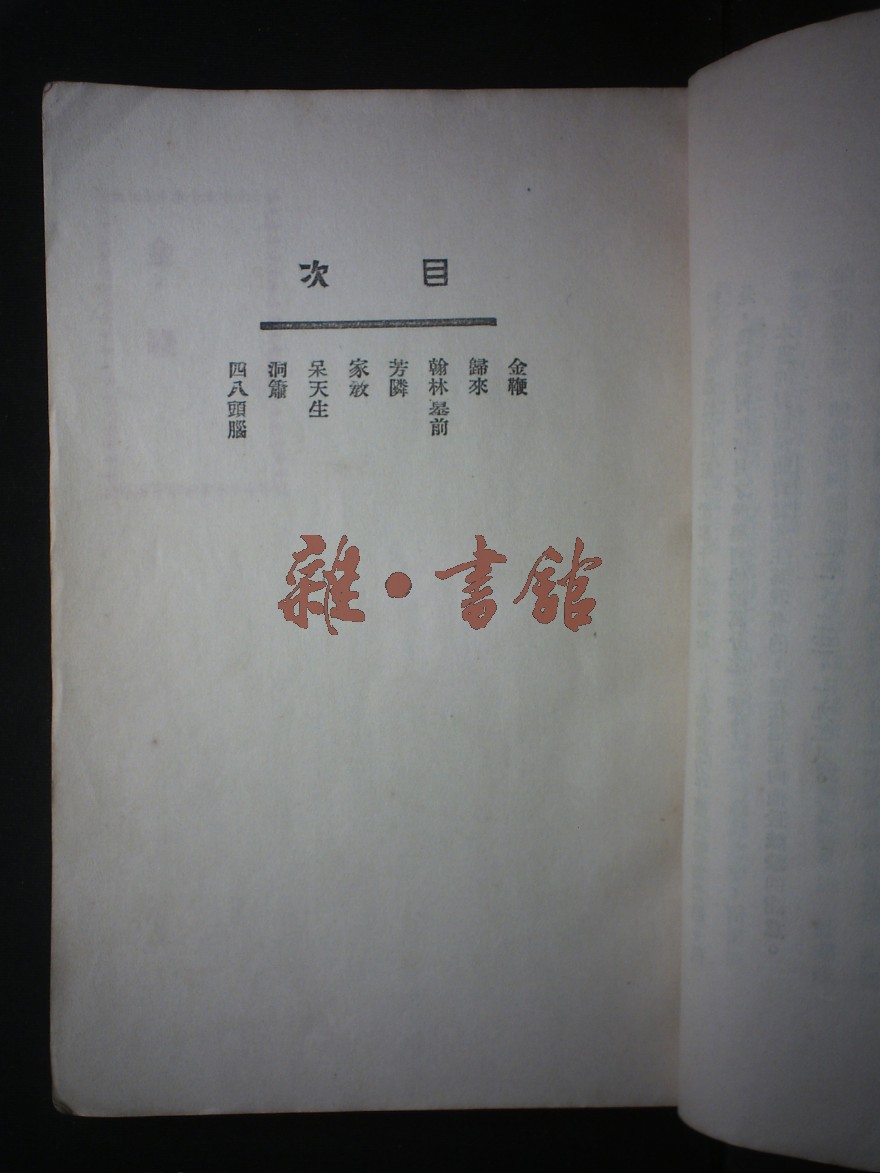 目次
金鞭
歸來
翰林墓前
芳隣
家教
呆天生
洞簫
四八頭腦
雜·書館